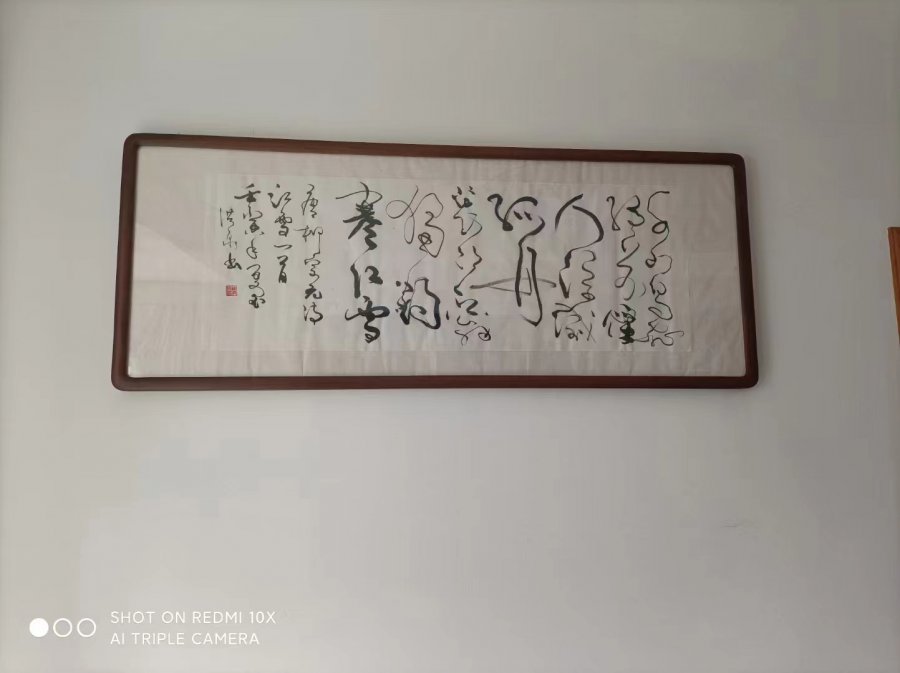 千山鳥飛
絕萬徑
人蹤滅
孤舟
蓑笠翁
獨釣
寒江雪
唐柳宗元詩
江雪一首
壬寅年
书
SHOT ON REDMI 10X
AI TRIPLE CAMERA